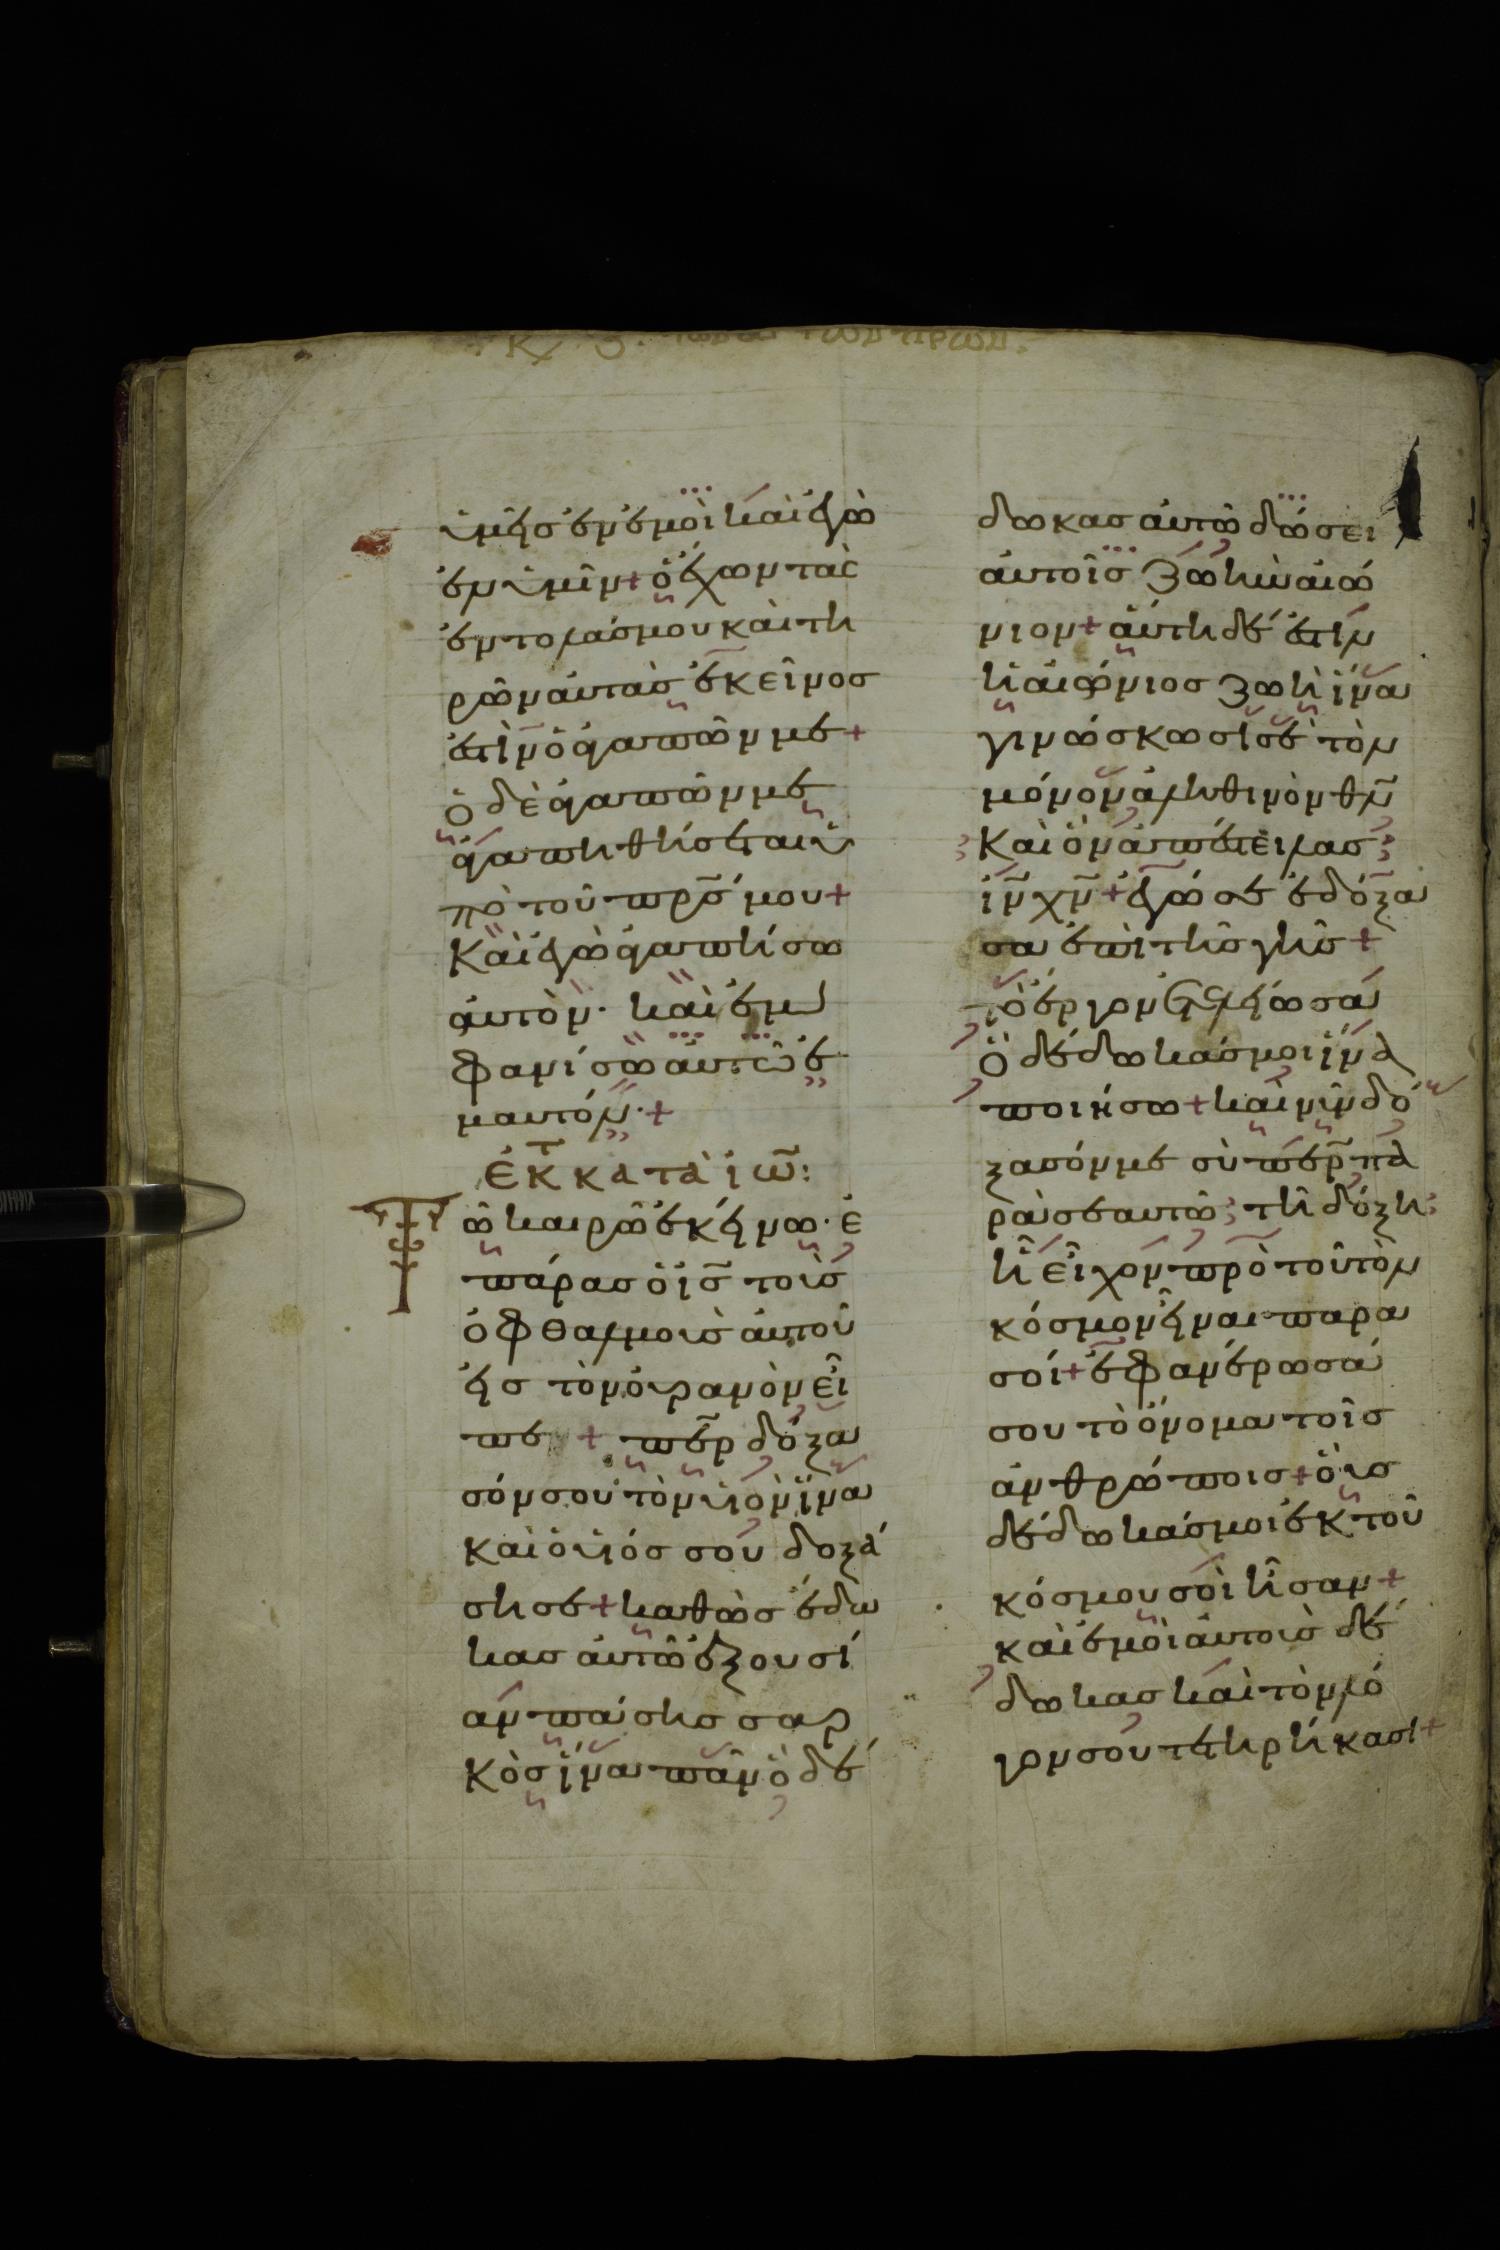 ὑμεῖσ ἐν ἐμοὶ καὶ ἐγὼ
ἐν ὑμῖν + ὁ ἔχων τὰς
ἐντολάσ μου καὶ τη
ρῶν αὐτὰσ ἐκεῖνοσ
ἐστὶν ὁ ἀγαπῶν με +
ὁ δὲ ἀγαπῶν με
ἀγαπηθήσεται ὑ
πὸ τοῦ πρ̅σ μου +
Καὶ ἐγὼ ἀγαπήσω
αὐτὸν · καὶ ἐμ
φανίσω αὐτῶ ἐ
μαυτόν · +
ἐκ κατὰ ἰω̅ :
Τῶ καιρῶ ἐκείνω · ἐ
πάρασ ὁ ισ̅ τοὺσ
ὀφθαλμοὺσ αὐτοῦ
εἰσ τὸν οὐρανὸν εἶ
πε + περ̅ δόξα
σόν σου τὸν υἱὸν ἵνα
καὶ ὁ υἱόσ σου δοξά
ση σε + καθὼσ ἔδω
κασ αὐτῶ ἐξουσί
αν πάσησ σαρ
κὸσ ἵνα πᾶν ὃ δέ
δωκασ αὐτῶ δώσει
αὐτοῖσ ζωὴν αἰώ
νιον + αὕτη δέ ἐστίν
ἡ αἰώνιοσ ζωὴ ἵνα
γινώσκωσί σε τὸν
μόνον ἀληθινὸν θν̅
Καὶ ὃν ἀπέστειλασ
ιν̅ χν̅ + ἐγώ σε ἐδόξα
σα ἐπὶ τῆσ γῆσ +
τὸ ἔργον ἐτελείωσα
ὃ δέδωκάσ μοι ἵνα
ποιήσω + καὶ νῦν δό
ξασόν με σὺ περ̅ πα
ρὰ σεαυτῶ τῆ δόξη
ἧ εἶχον πρὸ τοῦ τὸν
κόσμον εἶναι παρα
σοί + ἐφανέρωσά
σου τὸ ὄνομα τοῖσ
ἀνθρώποισ + οὓσ
δέδωκάσ μοι ἐκ τοῦ
κόσμου σοὶ ἦσαν +
καὶ ἐμοὶ αὐτοὺσ δέ
δωκασ καὶ τὸν λό
γον σου τετηρήκασι +